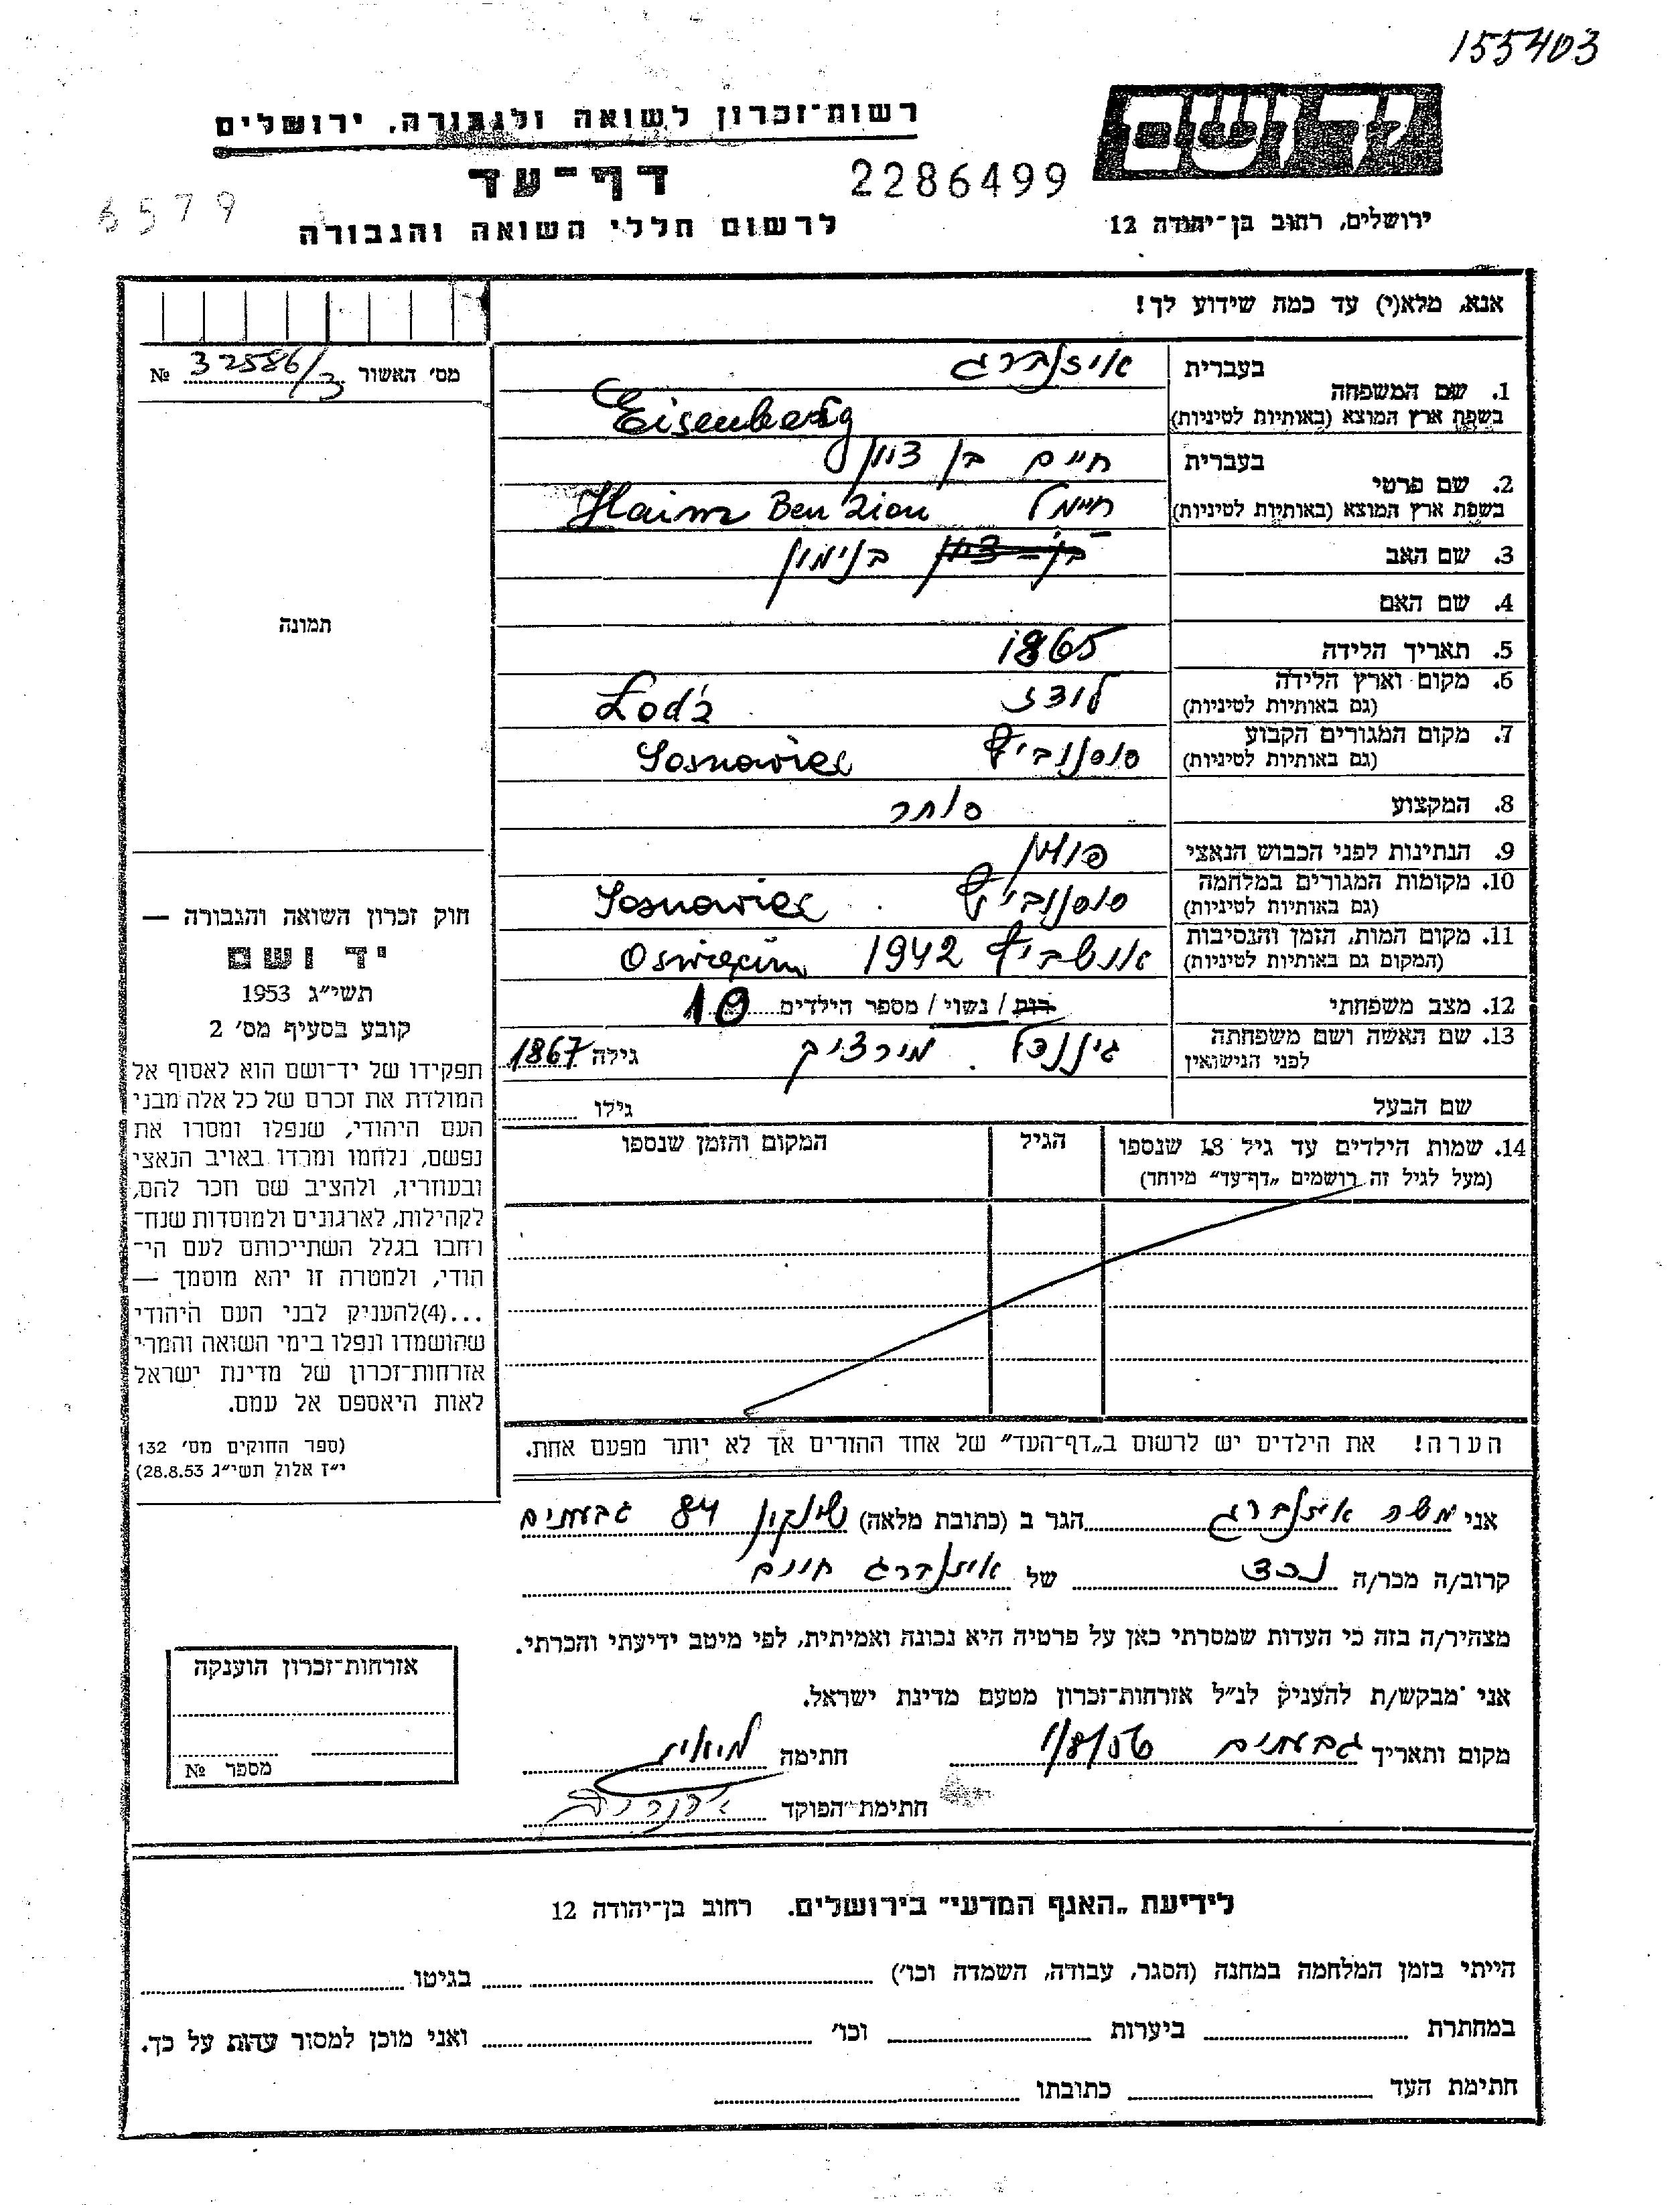 155403
רשות־זכרון לשואה ולגבורה, ירושלים
יד ושם
דף־עד
2286499
6579
לרשום חללי השואה והגבורה
ירושלים, רחוב בן־יהודה 12
אנא, מלא(י) עד כמה שידוע לך!
מס׳ האשור 32586/3 №
בעברית אייזנברג
1. שם המשפחה
בשפת ארץ המוצא (באותיות לטיניות) Eisenberg
בעברית חיים בן ציון
2. שם פרטי
בשפת ארץ המוצא (באותיות לטיניות) Haim Ben Zion
3. שם האב בנימין
4. שם האם
5. תאריך הלידה 1865
6. מקום וארץ הלידה לודז Łodź
(גם באותיות לטיניות)
7. מקום המגורים הקבוע סוסנוביץ Sosnowiec
(גם באותיות לטיניות)
8. המקצוע סוחר
9. הנתינות לפני הכבוש הנאצי פולין
10. מקומות המגורים במלחמה סוסנוביץ Sosnowiec
(גם באותיות לטיניות)
11. מקום המות, הזמן והנסיבות אושביץ 1942 Oświęcim
(המקום גם באותיות לטיניות)
12. מצב משפחתי רוק / נשוי / מספר הילדים 10
13. שם האשה ושם משפחתה גילה 1867
לפני הנישואין
שם הבעל גילו
14. שמות הילדים עד גיל 18 שנספו הגיל המקום והזמן שנספו
(מעל לגיל זה רושמים „דף־עד״ מיוחד)
הערה! את הילדים יש לרשום ב„דף־העד״ של אחד ההורים אך לא יותר מפעם אחת.
תמונה
חוק זכרון השואה והגבורה —
יד ושם
תשי״ג 1953
קובע בסעיף מס׳ 2
תפקידו של יד־ושם הוא לאסוף אל
המולדת את זכרם של כל אלה מבני
העם היהודי, שנפלו ומסרו את
נפשם, נלחמו ומרדו באויב הנאצי
ובעוזריו, ולהציב שם וזכר להם,
לקהילות, לארגונים ולמוסדות שנח־
רבו בגלל השתייכותם לעם הי־
הודי, ולמטרה זו יהא מוסמך —
...(4)להעניק לבני העם היהודי
שהושמדו ונפלו בימי השואה והמרי
אזרחות־זכרון של מדינת ישראל
לאות היאספם אל עמם.
(ספר החוקים מס׳ 132
י״ז אלול תשי״ג 28.8.53)
אני משה אייזנברג הגר ב (כתובת מלאה) שינקין 84 גבעתיים
קרוב/ה מכר/ה נכד של אייזנברג חיים
מצהיר/ה בזה כי העדות שמסרתי כאן על פרטיה היא נכונה ואמיתית, לפי מיטב ידיעתי והכרתי.
אני מבקש/ת להעניק לנ״ל אזרחות־זכרון מטעם מדינת ישראל.
מקום ותאריך גבעתיים 1/8/56 חתימה
חתימת הפוקד
אזרחות־זכרון הוענקה
מספר №
לידיעת „האגף המדעי״ בירושלים. רחוב בן־יהודה 12
הייתי בזמן המלחמה במחנה (הסגר, עבודה, השמדה וכו׳) בגיטו
במחתרת ביערות וכו׳ ואני מוכן למסור עדות על כך.
חתימת העד כתובתו